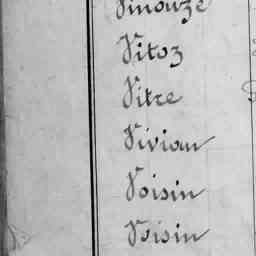 Vinouze
Vitoz
Vitre
Vivian
Voisin
Voisin